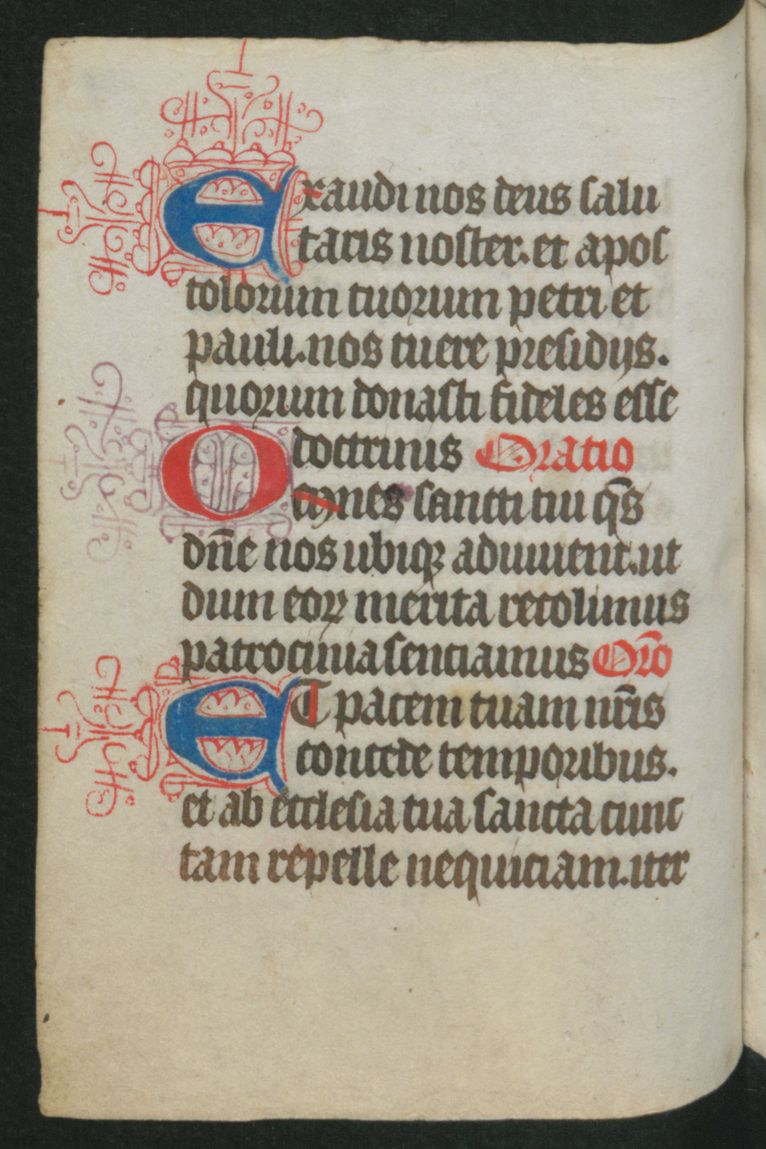 Exaudi nos deus salu
taris noster. et apos
tolorum tuorum petri et
pauli. nos tuere presidijs.
quorum donasti fideles esse
doctrinis Oratio
Omnes sancti tui q̄s
dn̄e nos ubiqꝫ adiuuent. ut
dum eoꝝ merita recolimus
patrocinia senciamus Or̄o
ET pacem tuam nr̄is
concede temporibus.
et ab ecclesia tua sancta cunc
tam repelle nequiciam. iter